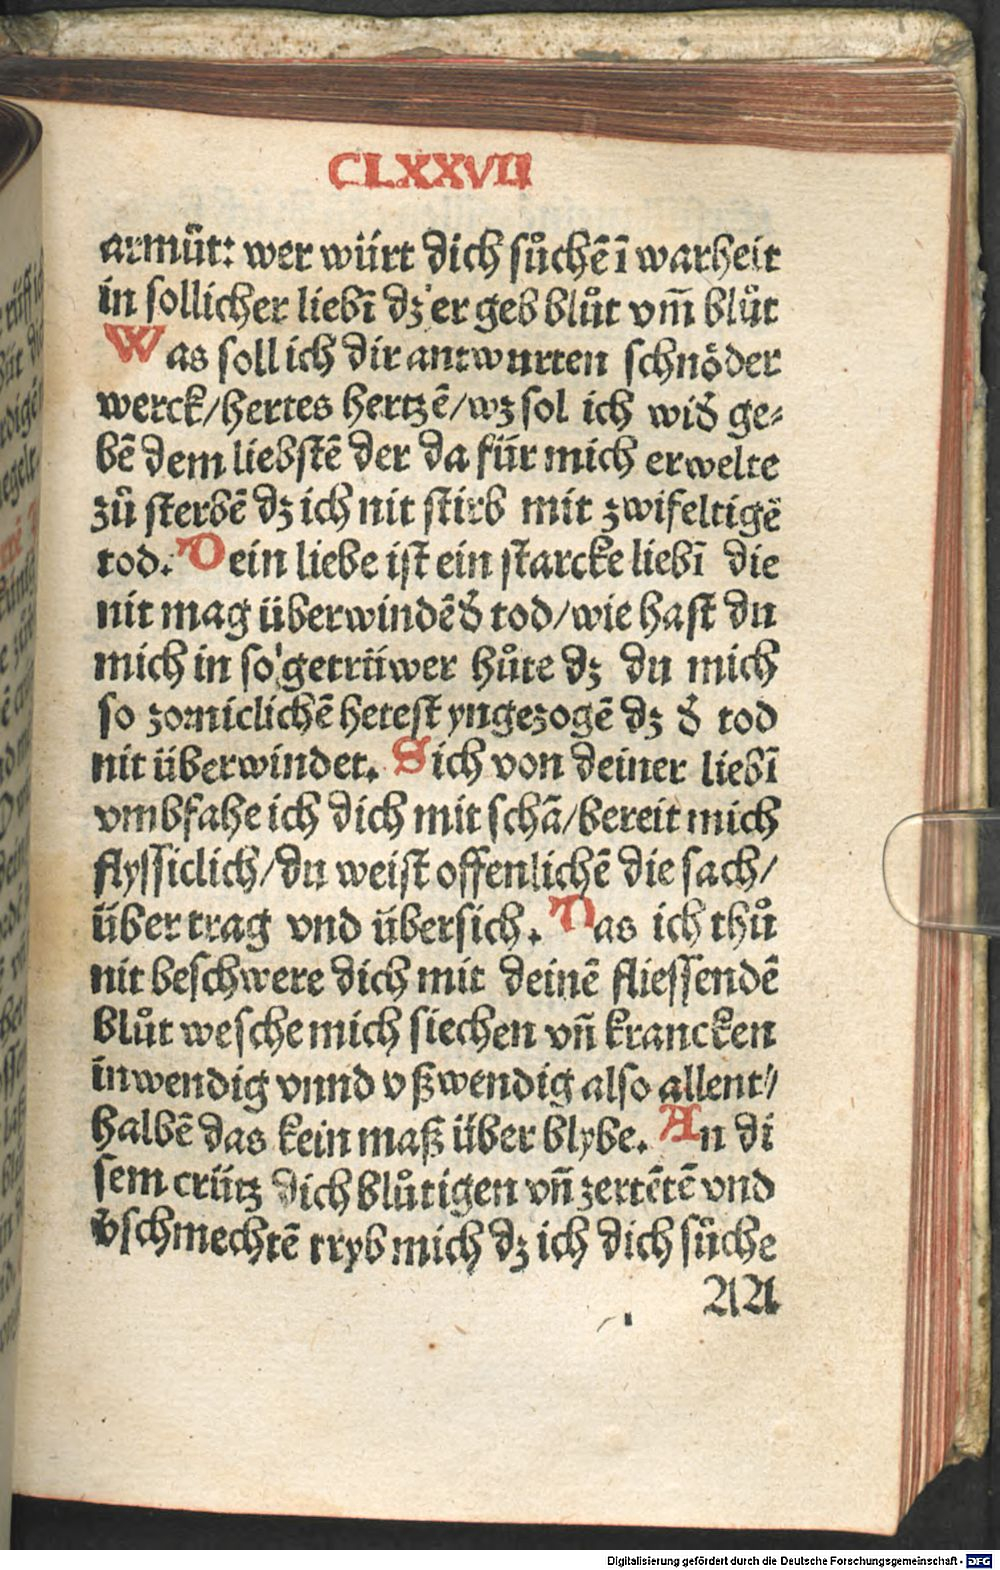 CLXXVII
armůt: wer würt dich sůchē ī warheit
in sollicher liebī dꝫ er geb blůt vm̄ blůt
Was soll ich dir antwurten schnöder
werck/hertes hertzē/wꝫ sol ich wid̕ ge⸗
bē dem liebstē der da für mich erwelte
zů sterbē dꝫ ich nit stirb mit zwifeltigē
tod. Dein liebe ist ein starcke liebī die
nit mag überwindē d̕ tod/wie hast du
mich in so getrüwer hůte dꝫ du mich
so zorniclichē herest yngezogē dꝫ d̕ tod
nit überwindet. Sich von deiner liebī
vmbfahe ich dich mit schā/bereit mich
flyssiclich/du weist offenlichē die sach/
über trag vnd übersich. Das ich thů
nit beschwere dich mit deinē fliessendē
blůt wesche mich siechen vn̄ krancken
inwendig vnnd vßwendig also allent⸗
halbē das kein maß über blybe. An di
sem crütz dich blůtigen vn̄ zertētē vnd
v̕schmechtē tryb mich dꝫ ich dich sůche
AA
Digitalisierung gefördert durch die Deutsche Forschungsgemeinschaft - DFG